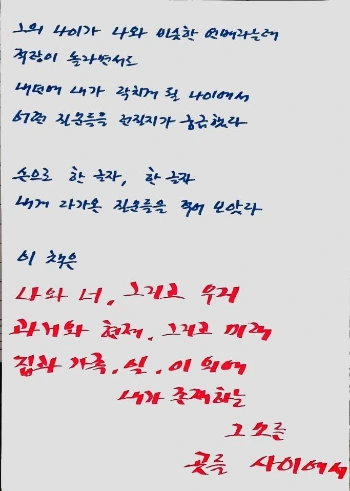 그의 나이가 나와 비슷한 연배라는데
적잖이 놀라면서도
내면에 내가 닥치게 될 나이에서
어떤 질문들을 던질지가 궁금했다
손으로 한 글자, 한 글자
내게 다가온 질문들을 적어 보았다
이 책은
나와 너, 그리고 우리
과거와 현재, 그리고 미래
집과 가족, 일, 이 외에
내가 존재하는
그 모든
곳들 사이에서